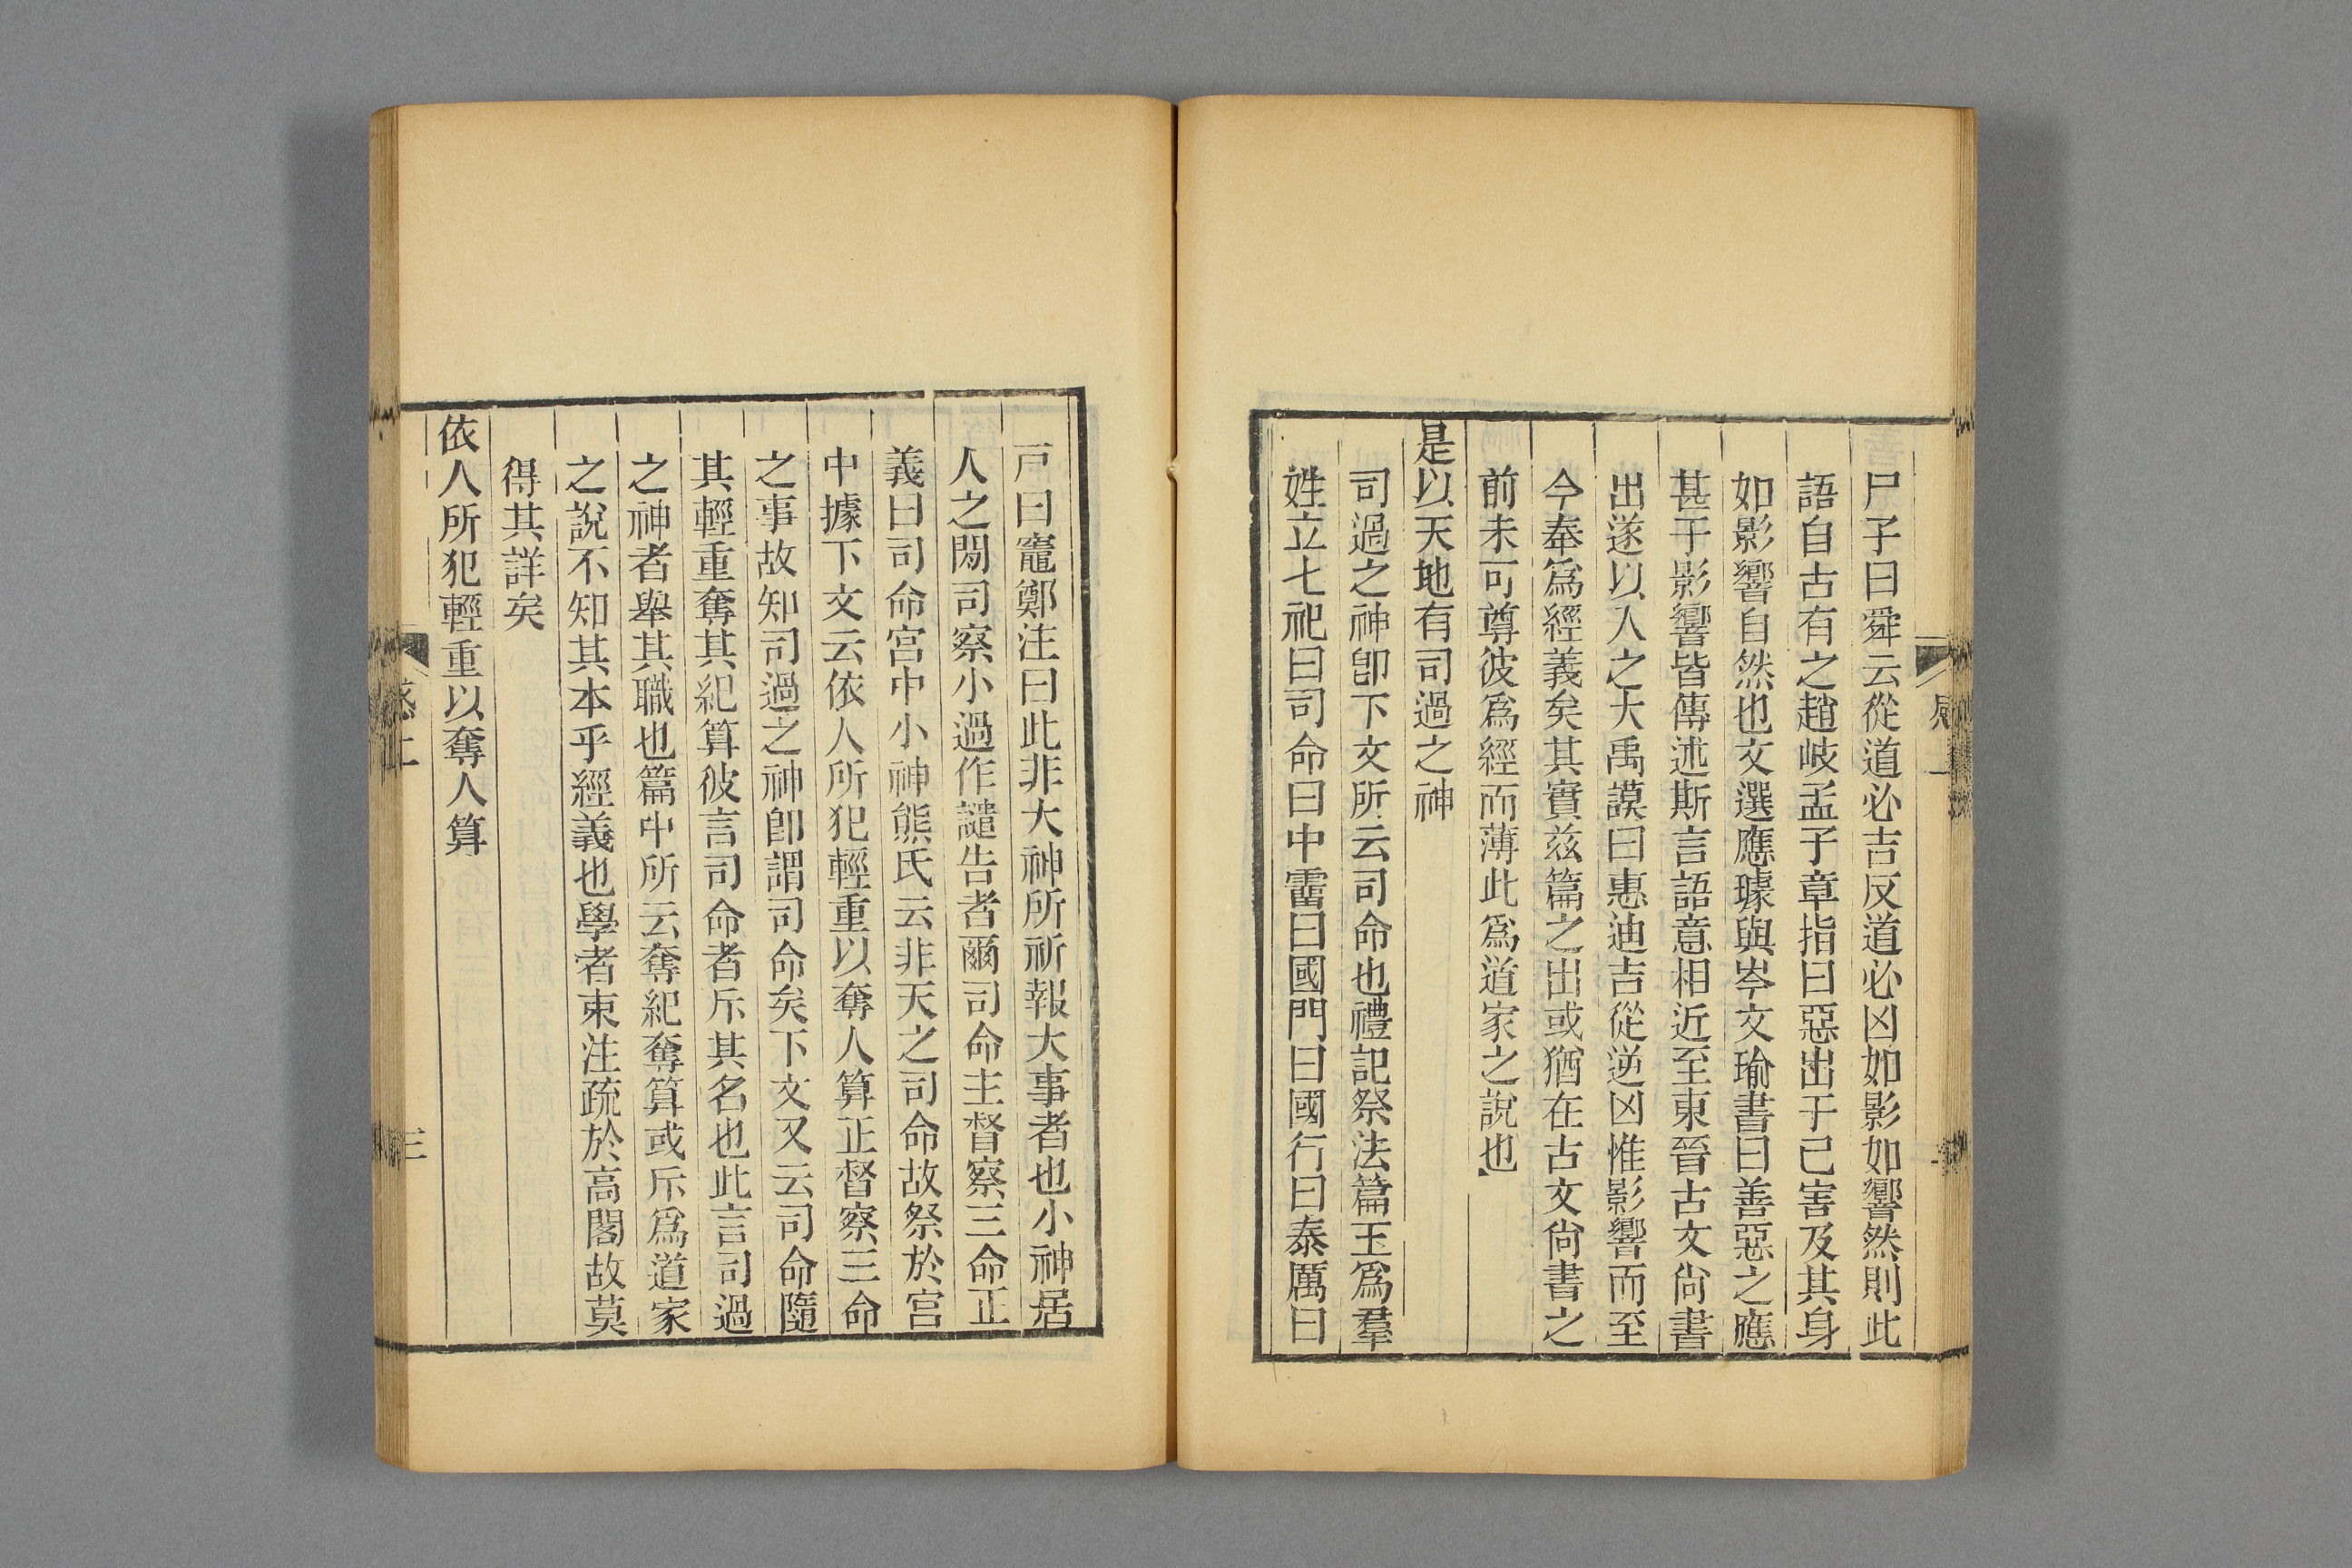 尸子曰舜云從道必吉反道必凶如影如響然則此
語自古有之趙岐孟子章指曰惡出于己害及其身
如影響自然也文選應璩與岑文瑜書曰善惡之應
甚于影響皆傳述斯言語意相近至東晉古文尙書
出遂以入之大禹謨曰惠迪吉從逆凶惟影響而至
今奉爲經義矣其實兹篇之出或猶在古文尙書之
前未可尊彼爲經而薄此爲道家之說也
是以天地有司過之神
司過之神卽下文所云司命也禮記祭法篇王爲羣
姓立七祀曰司命曰中霤曰國門曰國行曰泰厲曰
戸曰竈鄭注曰此非大神所祈報大事者也小神居
人之閒司察小過作譴告者爾司命主督察三命正
義曰司命宮中小神熊氏云非天之司命故祭於宮
中據下文云依人所犯輕重以奪人算正督察三命
之事故知司過之神卽謂司命矣下文又云司命隨
其輕重奪其紀算彼言司命者斥其名也此言司過
之神者舉其職也篇中所云奪紀奪算或斥爲道家
之說不知其本乎經義也學者束注疏於高閣故莫
得其詳矣
依人所犯輕重以奪人算
感上
三